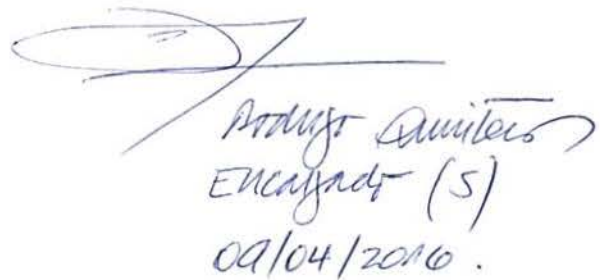 Rodrigo Quinteros
Encargado (S)
09/04/2016.